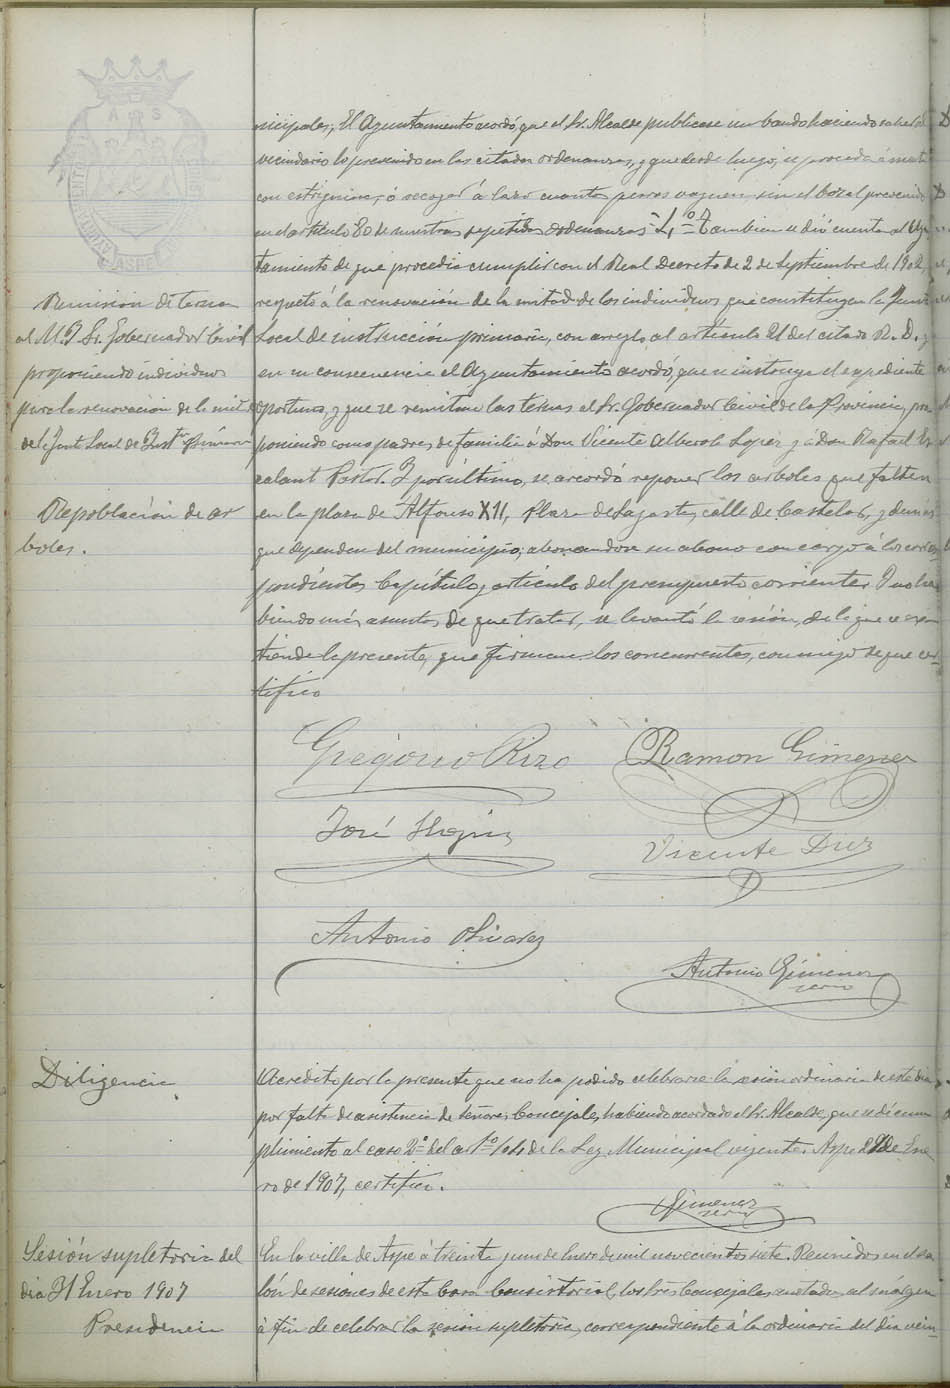 nicipales; El Ayuntamiento acordó, que el Sr. Alcalde publicase un bando haciendo saber al
vecindario lo prevenido en las citadas ordenanzas, y que desde luego, se proceda á matar
con estrignina, ó recoger á lazo cuantos perros vaguen sin el bozal prevenido
en el artículo 80 de nuestras repetidas ordenanzas Tambien se dió cuenta al Ayun
tamiento de que procedia cumplir con el Real Decreto de 2 de Septiembre de 1902,
respecto á la renovación de la mitad de los individuos que constituyen la Junta
Local de instrucción primaria, con arreglo al articulo 21 del citado R. D. y
en su consecuencia el Ayuntamiento acordó, que se instruya el expediente
oportuno, y que se remitan las ternas al Sr. Gobernador Civil de la Provincia, pro-
poniendo como padres de familia á Don Vicente Alberola Lopez y á Don Rafael
calant Pastor. Y por último, se acordó reponer los arboles que falten
en la plaza de Alfonso XII, plaza de Sagasta, calle de Castelar, y demás
que dependen del municipio; abonandose su abono con cargo á los corres
pondientes Capítulo, articulo del presupuesto corriente. Y no ha
biendo más asuntos de que tratar, se levantó la sesión, de la que se ex
tiende la presente, que firman los concurrentes, conmigo de que cer-
tifico
Remision de ternas
al M. I. Sr. Gobernador Civil
proponiendo individuos
para la renovacion de la mitad
de la Junta Local de Instª Primaria
Repoblación de ar
boles.
Gregorio Rizo
Ramon Gimenez
José
Vicente Diez
Antonio Olivarez
Antonio Gimenez
serio
Diligencia
Acredito por la presente que no ha podido celebrarse la sesión ordinaria de este dia
por falta de asistencia de señores Concejales, habiendo acordado el Sr. Alcalde, que se dé cum
plimiento al caso 2º del artº 104 de la Ley Municipal vigente. Aspe 29 de Ene
ro de 1907, certifico.
Gimenez
serio
Sesión supletoria del
dia 31 Enero 1907
Presidencia
En la villa de Aspe á treinta y uno de Enero de mil novecientos siete. Reunidos en el sa
lón de sesiones de esta Casa Consistorial, los tres Concejales anotados al márgen
á fin de celebrar la sesión supletoria, correspondiente á la ordinaria del dia vein-